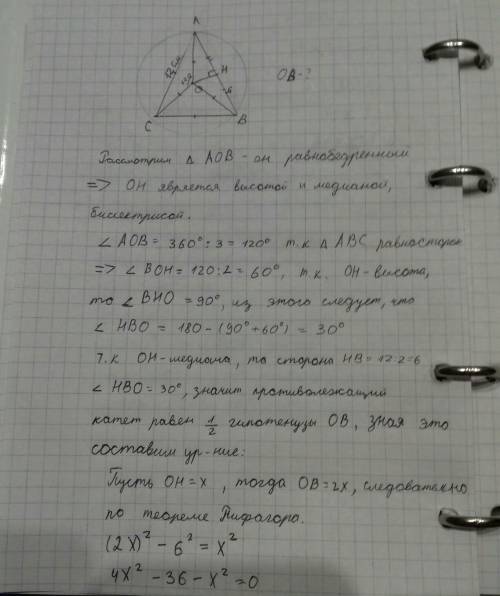 A
12 см
120
H
6
O
C
B
OB-?
Рассмотрим △ AOB - он равнобедренный
=> OH является высотой и медианой,
биссектрисой.
∠ AOB = 360° : 3 = 120° т.к △ ABC равносторон
=> ∠ BOH = 120 : 2 = 60°, т.к. OH - высота,
то ∠ BHO = 90°, из этого следует, что
∠ HBO = 180 - (90° + 60°) = 30°
Т.к. OH - медиана, то сторона HB = 12:2=6
∠ HBO = 30°, значит противолежащий
катет равен 1/2 гипотенузы OB, зная это
составим ур-ние:
Пусть OH = x, тогда OB = 2x, следовательно
по теореме Пифагора.
(2x)² - 6² = x²
4x² - 36 - x² = 0